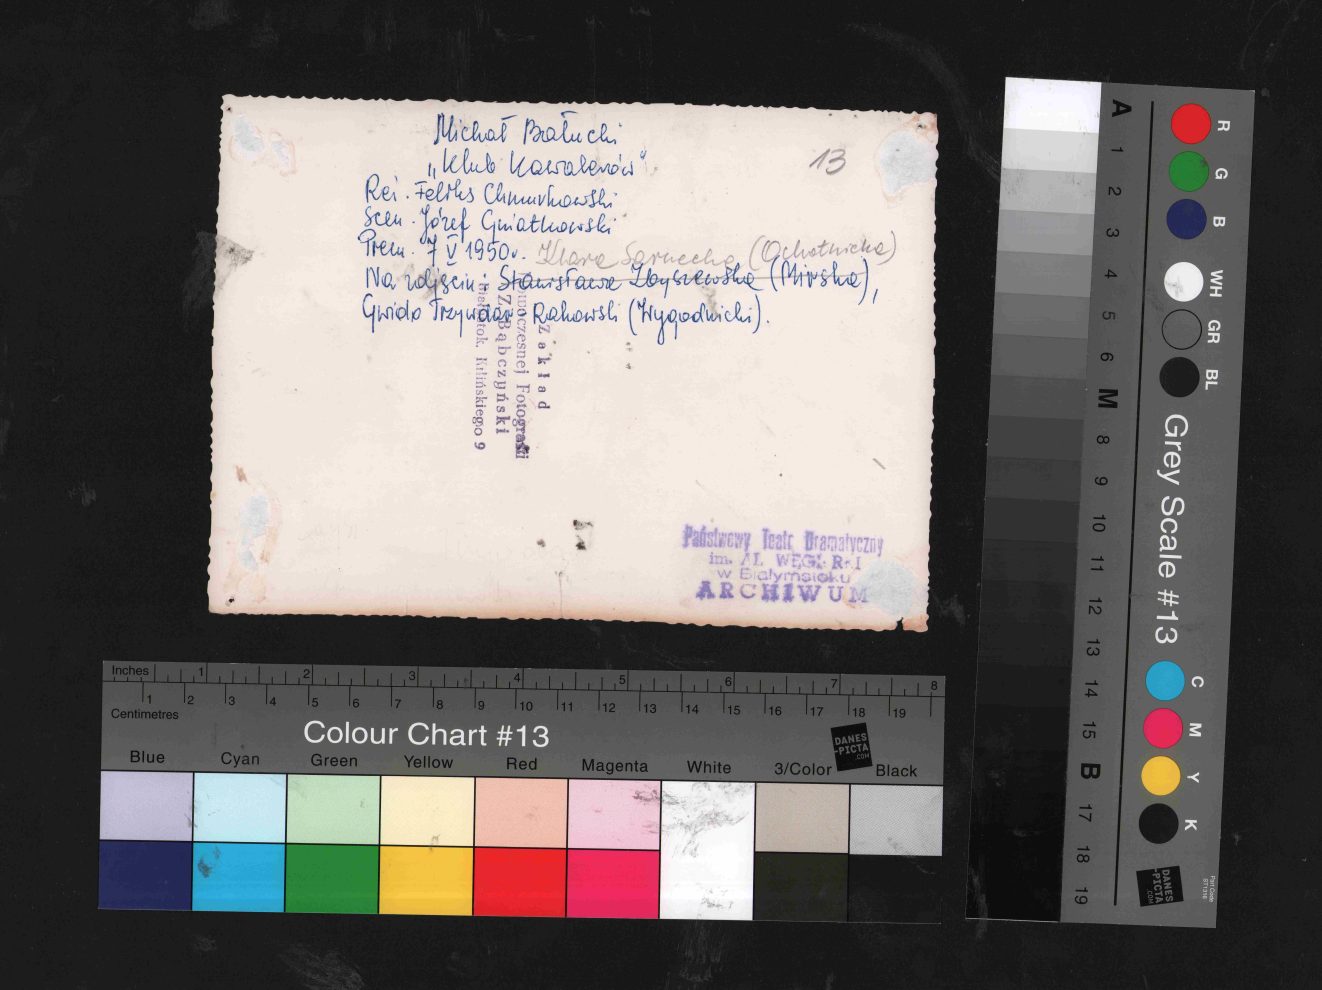 Michał Bałucki
„Klub Kawalerów"
13
Reż. Feliks Chmurkowski
Scen. Józef Gniatkowski
Prem. 7 V 1950r. Klara Sarnecka (Ochotnicka)
Na zdjęciu: Stanisława Zbyszewska (Mirska),
Gwido Trzywdar Rakowski (Wygodnicki).
Zakład
Fotografii
Z. Bąbczyński
Kilińskiego 9
Państwowy Teatr Dramatyczny
im. AL. WĘGIERKI
w Białymstoku
ARCHIWUM
Inches 1 2 3 4 5 6 7 8
1 2 3 4 5 6 7 8 9 10 11 12 13 14 15 16 17 18 19
Centimetres
Colour Chart #13
DANES
-PICTA
.COM
Blue Cyan Green Yellow Red Magenta White 3/Color Black
A 1 2 3 4 5 6 M 8 9 10 11 12 13 14 15 B 17 18 19
R G B WH GR BL
Grey Scale #13
C M Y K
DANES
-PICTA
.COM
Part Code